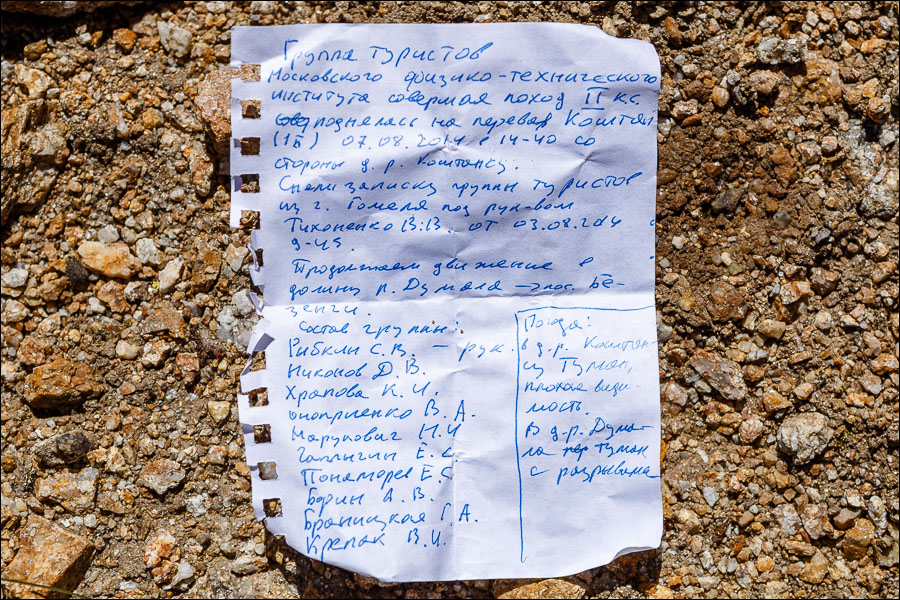 Группа туристов
Московского физико-технического
института совершая поход II к.с.
поднялась на перевал Коштан
(1Б) 07.08.2014 в 14-40 со
стороны д.р. Коштансу.
Сняли записку группы туристов
из г. Гомеля под рук-вом
Тихоненко В.В. от 03.08.2014 в
9-45.
Продолжаем движение в
долину р. Думала → пос. Бе-
зенги.
Состав группы:
Рибклн С.В. – рук.
Никонов Д.В.
Храпова К.И.
Оноприенко В.А.
Марукович Н.И
Галлыгин Е.С
Пономарев Е.С
Борин А.В.
Браницкая Г.А.
Крепак В.И.
Погода:
в д.р. Коштан
туман,
плохая види-
мость.
В д.р. Дума-
ла туман
с разрывами